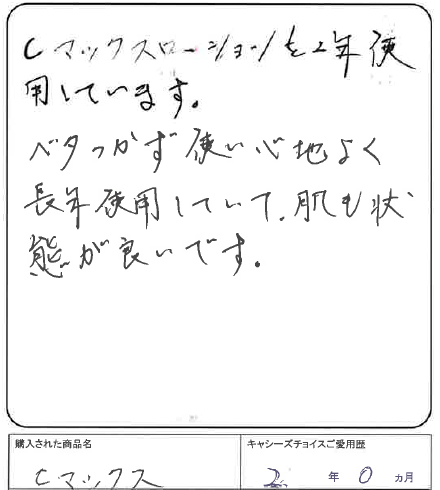 Cマックスローションを2年使
用しています。
ベタつかず使い心地よく
長年使用していて、肌も状
態が良いです。
購入された商品名
キャシーズチョイスご愛用歴
Cマックス
2 年 0 カ月